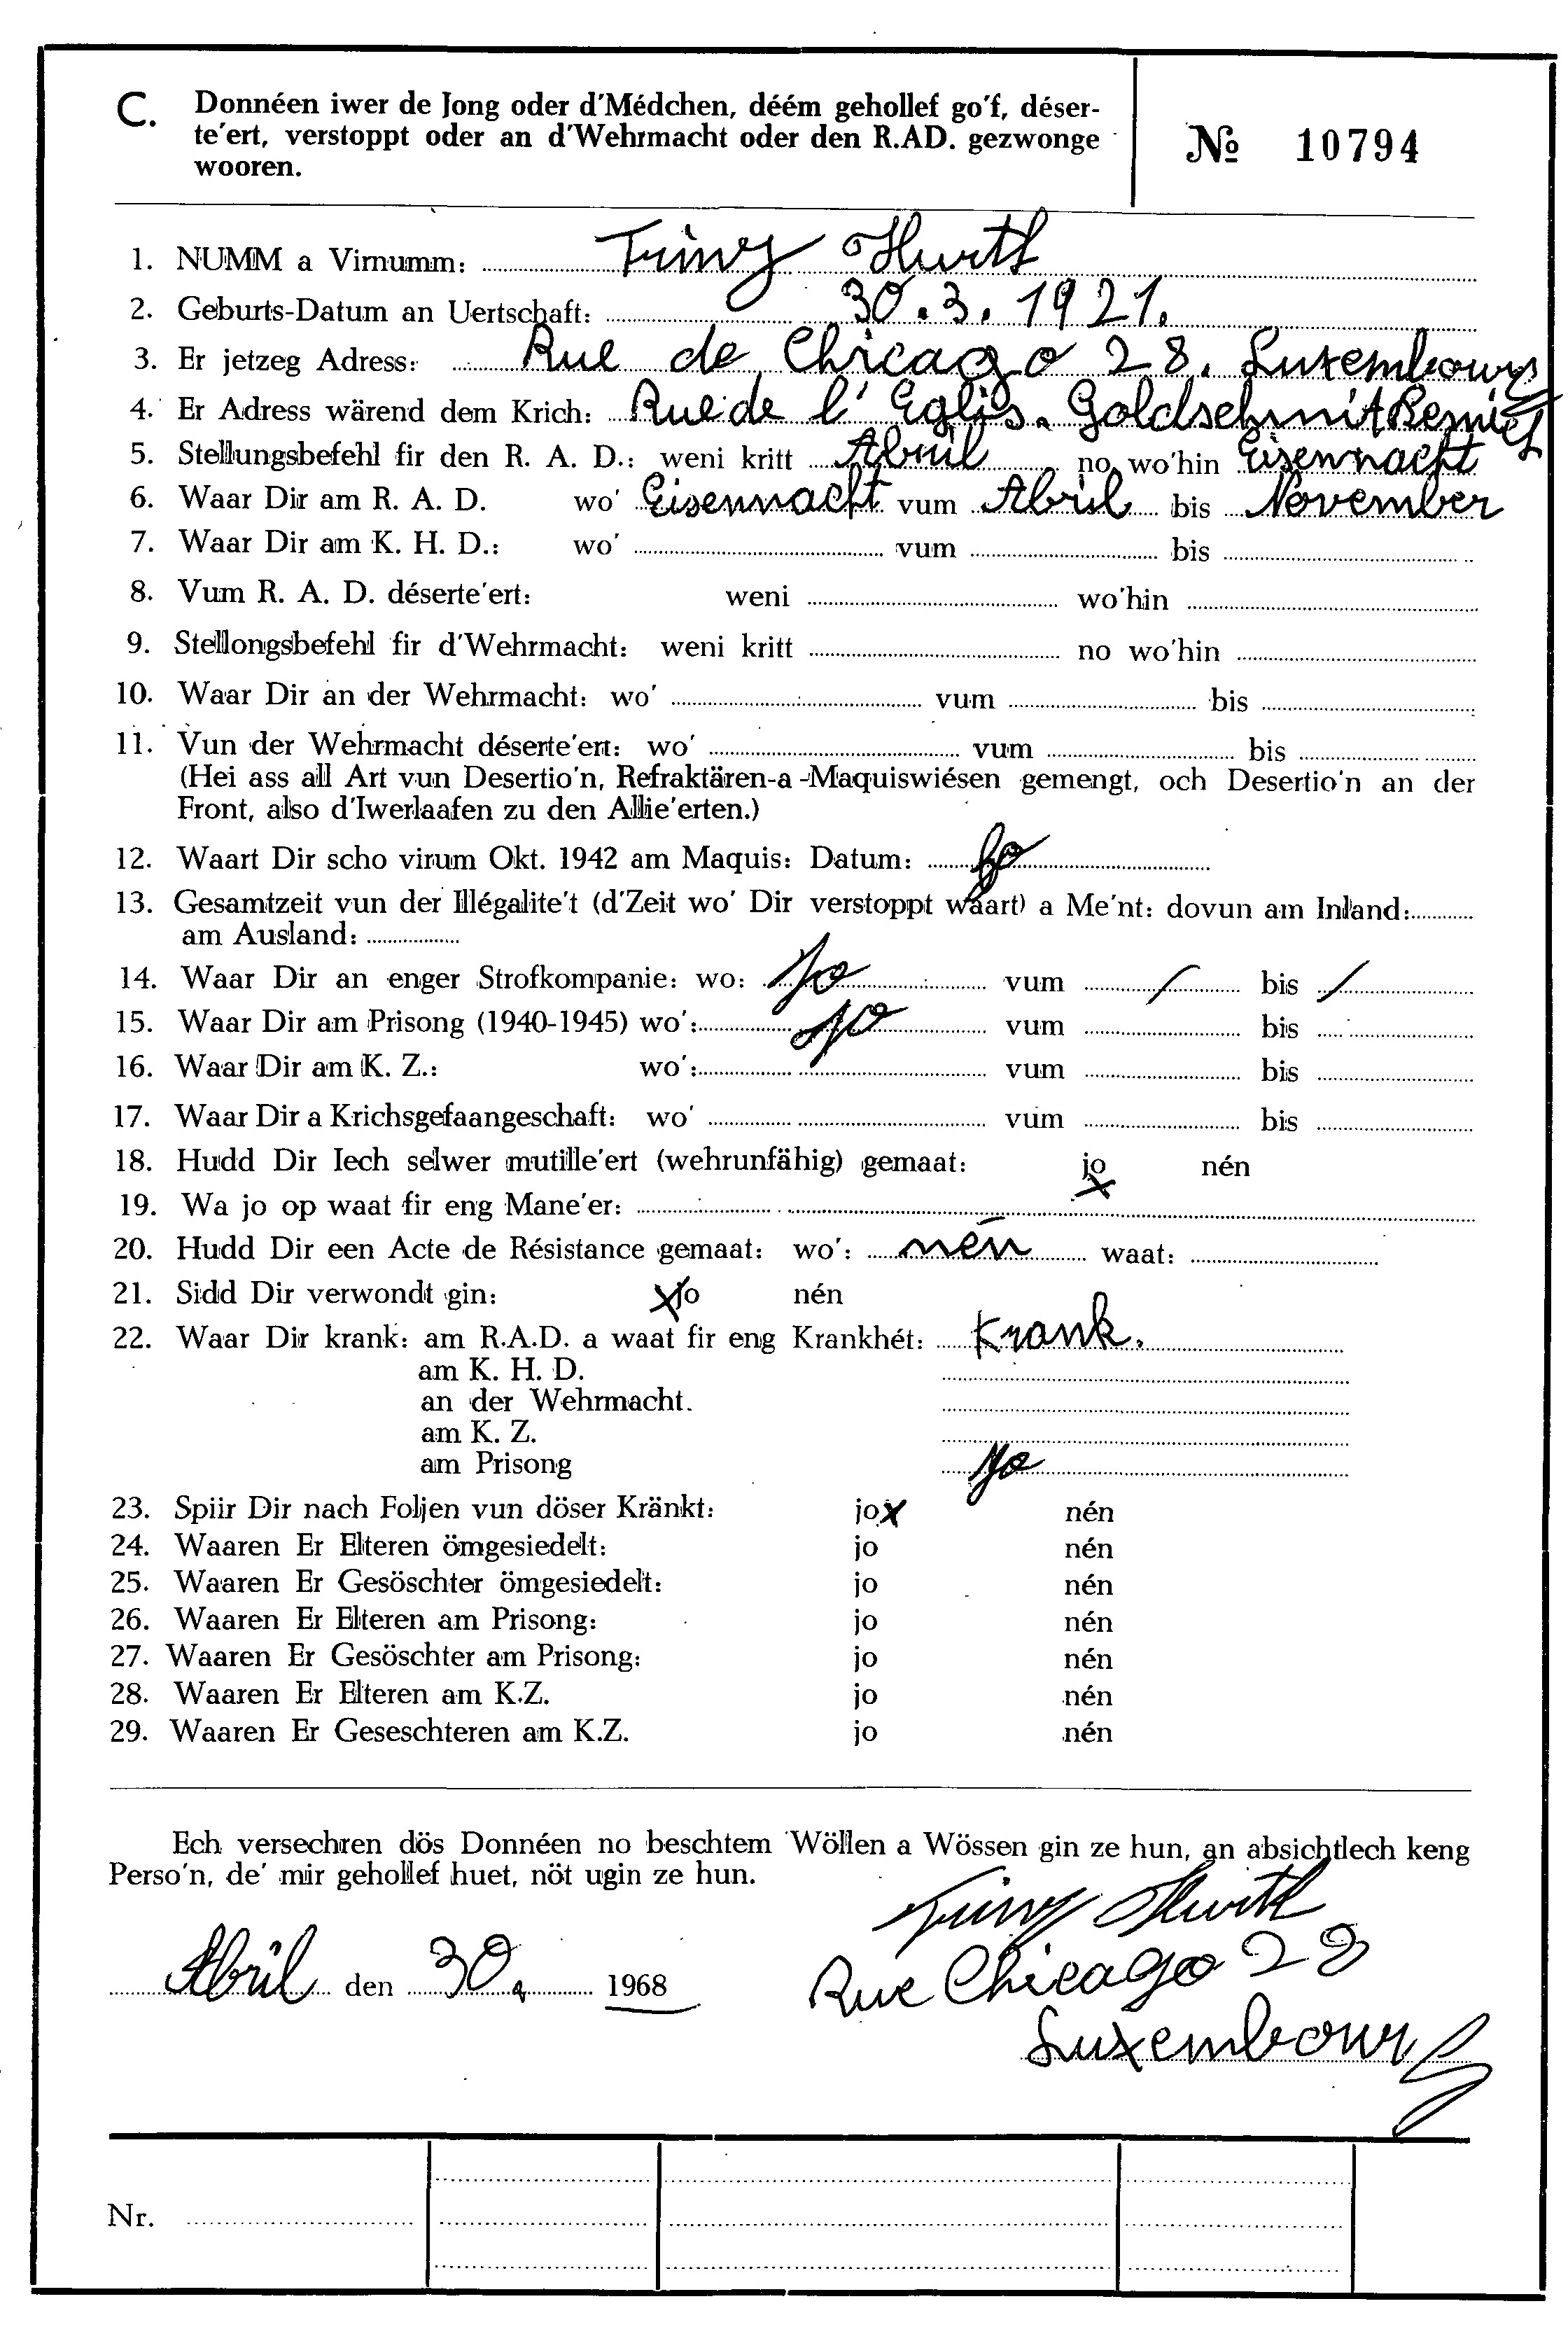 C. Donnéen iwer de Jong oder d'Médchen, déém gehollef go'f, déser-
te'ert, verstoppt oder an d'Wehrmacht oder den R.AD. gezwonge
wooren.
№ 10794
1. NUMM a Virnumm: Triny Hurth
2. Geburts-Datum an Uertschaft: 30.3.1921.
3. Er jetzeg Adress: Rue de Chicago 28. Luxembourg
4. Er Adress wärend dem Krich: Rue de l'Eglis. Goldschmit Remich
5. Stellungsbefehl fir den R. A. D.: weni kritt Abril no wo'hin Eisennacht
6. Waar Dir am R. A. D. wo' Eisennacht vum Abril bis November
7. Waar Dir am K. H. D.: wo' vum bis
8. Vum R. A. D. déserte'ert: weni wo'hin
9. Stellongsbefehl fir d'Wehrmacht: weni kritt no wo'hin
10. Waar Dir an der Wehrmacht: wo' vum bis
11. Vun der Wehrmacht déserte'ert: wo' vum bis
(Hei ass all Art vun Desertio'n, Refraktären-a-Maquiswiésen gemengt, och Desertio'n an der
Front, also d'Iwerlaafen zu den Allie'erten.)
12. Waart Dir scho virum Okt. 1942 am Maquis: Datum: Jo
13. Gesamtzeit vun der Illégalite't (d'Zeit wo' Dir verstoppt waart) a Me'nt: dovun am Inland:
am Ausland:
14. Waar Dir an enger Strofkompanie: wo: Jo vum / bis /
15. Waar Dir am Prisong (1940-1945) wo': Jo vum bis
16. Waar Dir am K. Z.: wo': vum bis
17. Waar Dir a Krichsgefaangeschaft: wo' vum bis
18. Hudd Dir Iech selwer mutille'ert (wehrunfähig) gemaat: jo x nén
19. Wa jo op waat fir eng Mane'er:
20. Hudd Dir een Acte de Résistance gemaat: wo': nén waat:
21. Sidd Dir verwondt gin: x jo nén
22. Waar Dir krank: am R.A.D. a waat fir eng Krankhét: Krank.
am K. H. D.
an der Wehrmacht.
am K. Z.
am Prisong Jo
23. Spiir Dir nach Foljen vun döser Kränkt: jo x nén
24. Waaren Er Elteren ömgesiedelt: jo nén
25. Waaren Er Gesöschter ömgesiedelt: jo nén
26. Waaren Er Elteren am Prisong: jo nén
27. Waaren Er Gesöschter am Prisong: jo nén
28. Waaren Er Elteren am K.Z. jo nén
29. Waaren Er Geseschteren am K.Z. jo nén
Ech versechren dös Donnéen no beschtem Wöllen a Wössen gin ze hun, an absichtlech keng
Perso'n, de' mir gehollef huet, nöt ugin ze hun.
Triny Hurth
Abril den 30. 1968
Rue Chicago 28
Luxembourg
Nr.